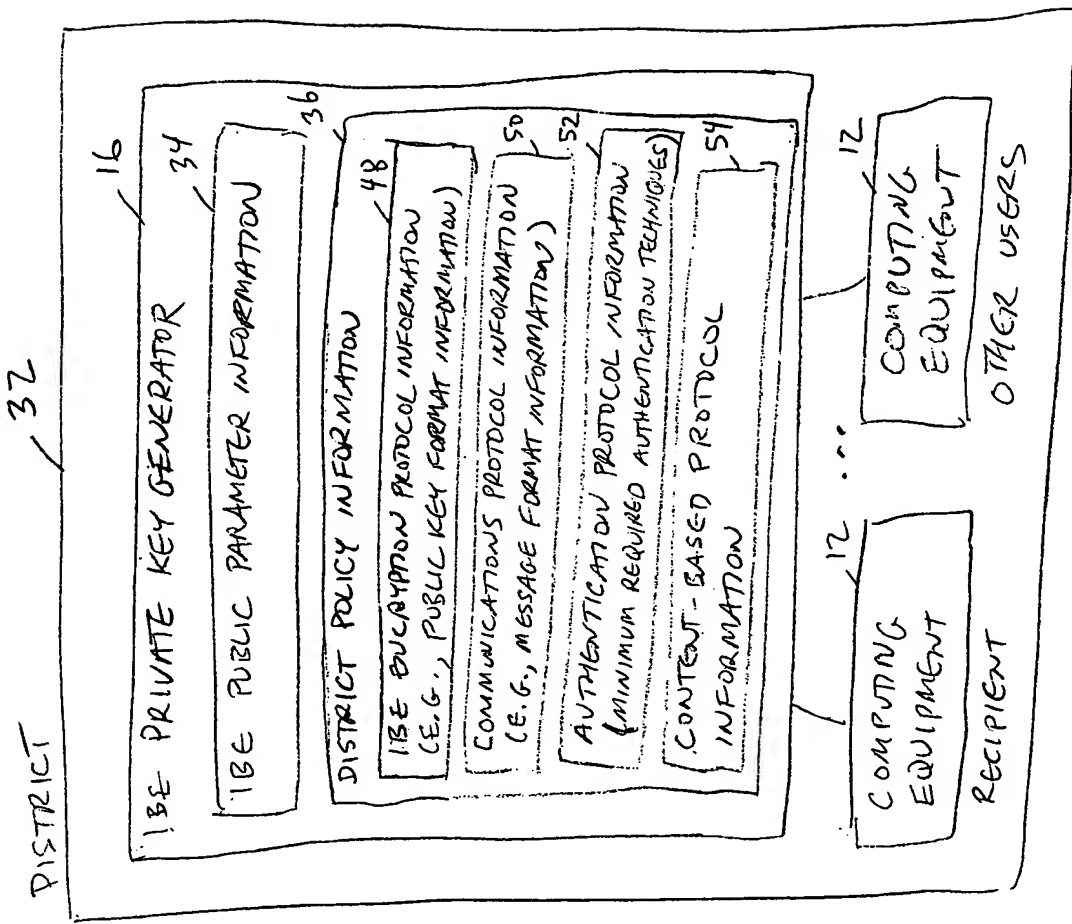 DISTRICT
32
16
IBE PRIVATE KEY GENERATOR
34
IBE PUBLIC PARAMETER INFORMATION
36
DISTRICT POLICY INFORMATION
48
IBE ENCRYPTION PROTOCOL INFORMATION
(E.G., PUBLIC KEY FORMAT INFORMATION)
50
COMMUNICATIONS PROTOCOL INFORMATION
(E.G., MESSAGE FORMAT INFORMATION)
52
AUTHENTICATION PROTOCOL INFORMATION
(MINIMUM REQUIRED AUTHENTICATION TECHNIQUES)
54
CONTENT-BASED PROTOCOL
INFORMATION
12
COMPUTING
EQUIPMENT
RECIPIENT
...
12
COMPUTING
EQUIPMENT
OTHER USERS